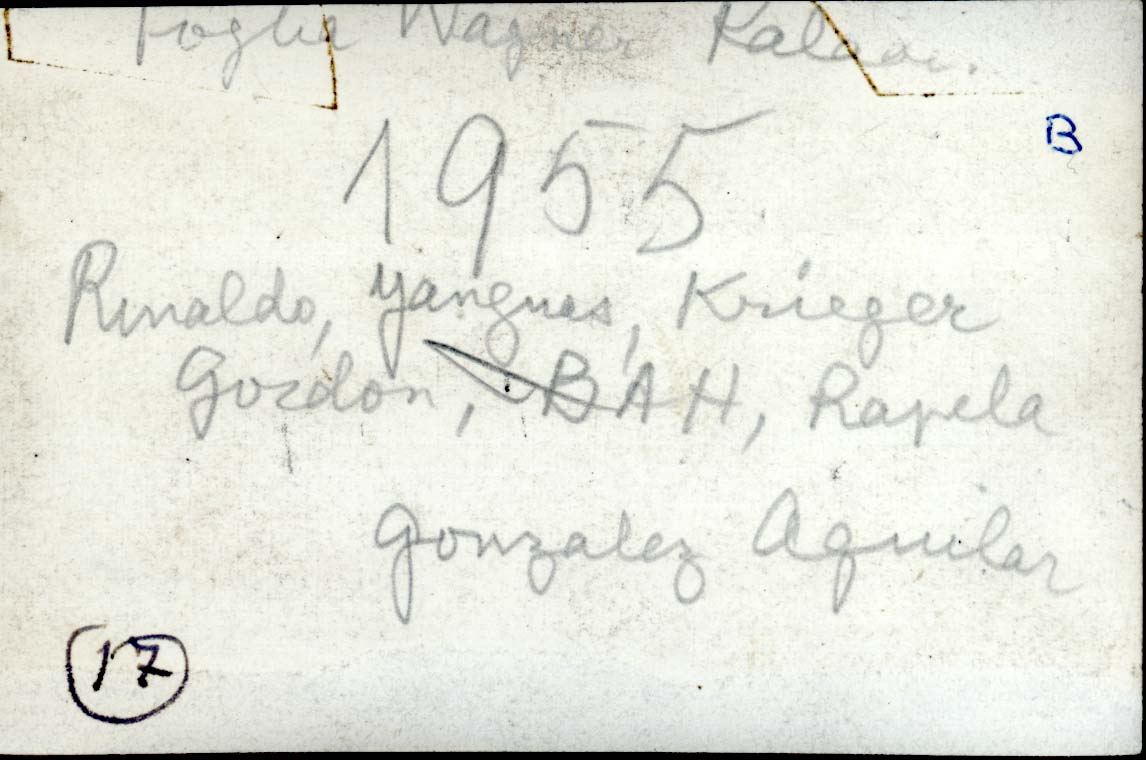 Foglia Wagner
1955
B
Rinaldo, Yanguas, Krieger
Gordon, BAH, Rapela
Gonzalez Aguilar
17